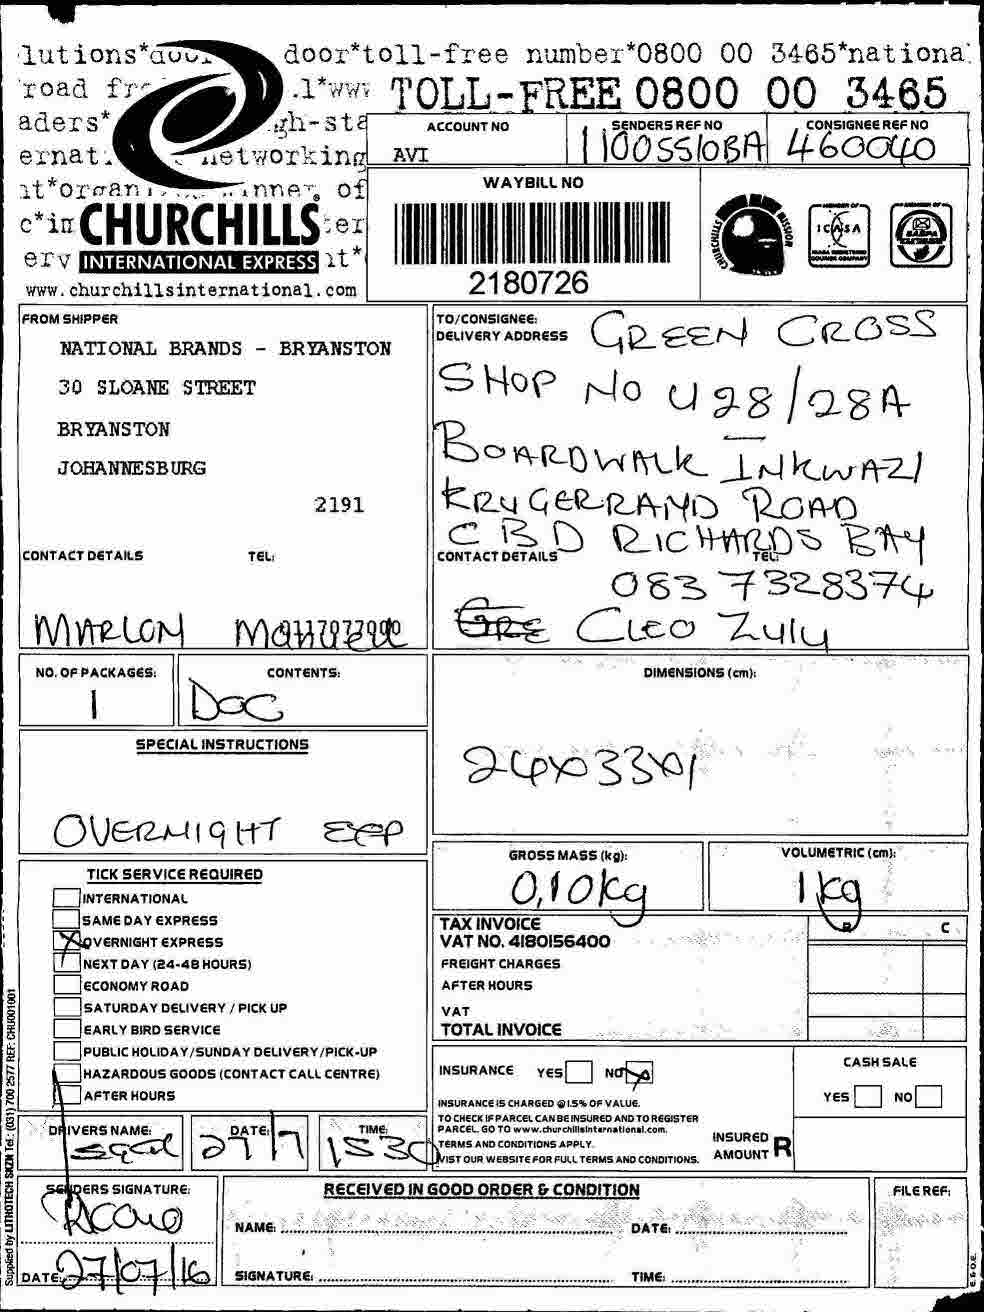 lutions* door*toll-free number*0800 00 3465*national
road .l*www TOLL-FREE 0800 00 3465
aders* gh-sta
ernat networking
nt*organ inner of
CHURCHILLS
INTERNATIONAL EXPRESS
www.churchillsinternational.com
ACCOUNT NO
AVI
SENDERS REF NO
1100SS10BA
CONSIGNEE REF NO
460040
WAYBILL NO
2180726
CHURCHILLS MISSION
MEMBER OF
ICASA
FROM SHIPPER
NATIONAL BRANDS - BRYANSTON
30 SLOANE STREET
BRYANSTON
JOHANNESBURG
2191
CONTACT DETAILS TEL:
MARLON
TO/CONSIGNEE:
DELIVERY ADDRESS
GREEN CROSS
SHOP NO U28/28A
BOARDWALK INKWAZI
KRUGERRAND ROAD
CBD RICHARDS BAY
CONTACT DETAILS TEL:
083 7328374
CLEO ZULU
NO. OF PACKAGES:
1
CONTENTS:
DOC
DIMENSIONS (cm):
24x33x1
SPECIAL INSTRUCTIONS
OVERNIGHT EXP
GROSS MASS (kg):
0,10kg
VOLUMETRIC (cm):
1kg
TICK SERVICE REQUIRED
INTERNATIONAL
SAME DAY EXPRESS
OVERNIGHT EXPRESS
NEXT DAY (24-48 HOURS)
ECONOMY ROAD
SATURDAY DELIVERY / PICK UP
EARLY BIRD SERVICE
PUBLIC HOLIDAY/SUNDAY DELIVERY/PICK-UP
HAZARDOUS GOODS (CONTACT CALL CENTRE)
AFTER HOURS
TAX INVOICE
VAT NO. 4180156400
R C
FREIGHT CHARGES
AFTER HOURS
VAT
TOTAL INVOICE
INSURANCE YES NO
INSURANCE IS CHARGED @1.5% OF VALUE.
TO CHECK IF PARCEL CAN BE INSURED AND TO REGISTER
PARCEL. GO TO www.churchillsinternational.com.
TERMS AND CONDITIONS APPLY.
VIST OUR WEBSITE FOR FULL TERMS AND CONDITIONS.
CASH SALE
YES NO
INSURED
AMOUNT R
DRIVERS NAME:
DATE:
27/7
TIME:
1530
SENDERS SIGNATURE:
DATE: 27/07/16
RECEIVED IN GOOD ORDER & CONDITION
NAME: DATE:
SIGNATURE: TIME:
FILE REF:
Supplied by LITHOTECH SKZN Tel: (031) 700 2577 REF: CHU001001
E. & O.E.